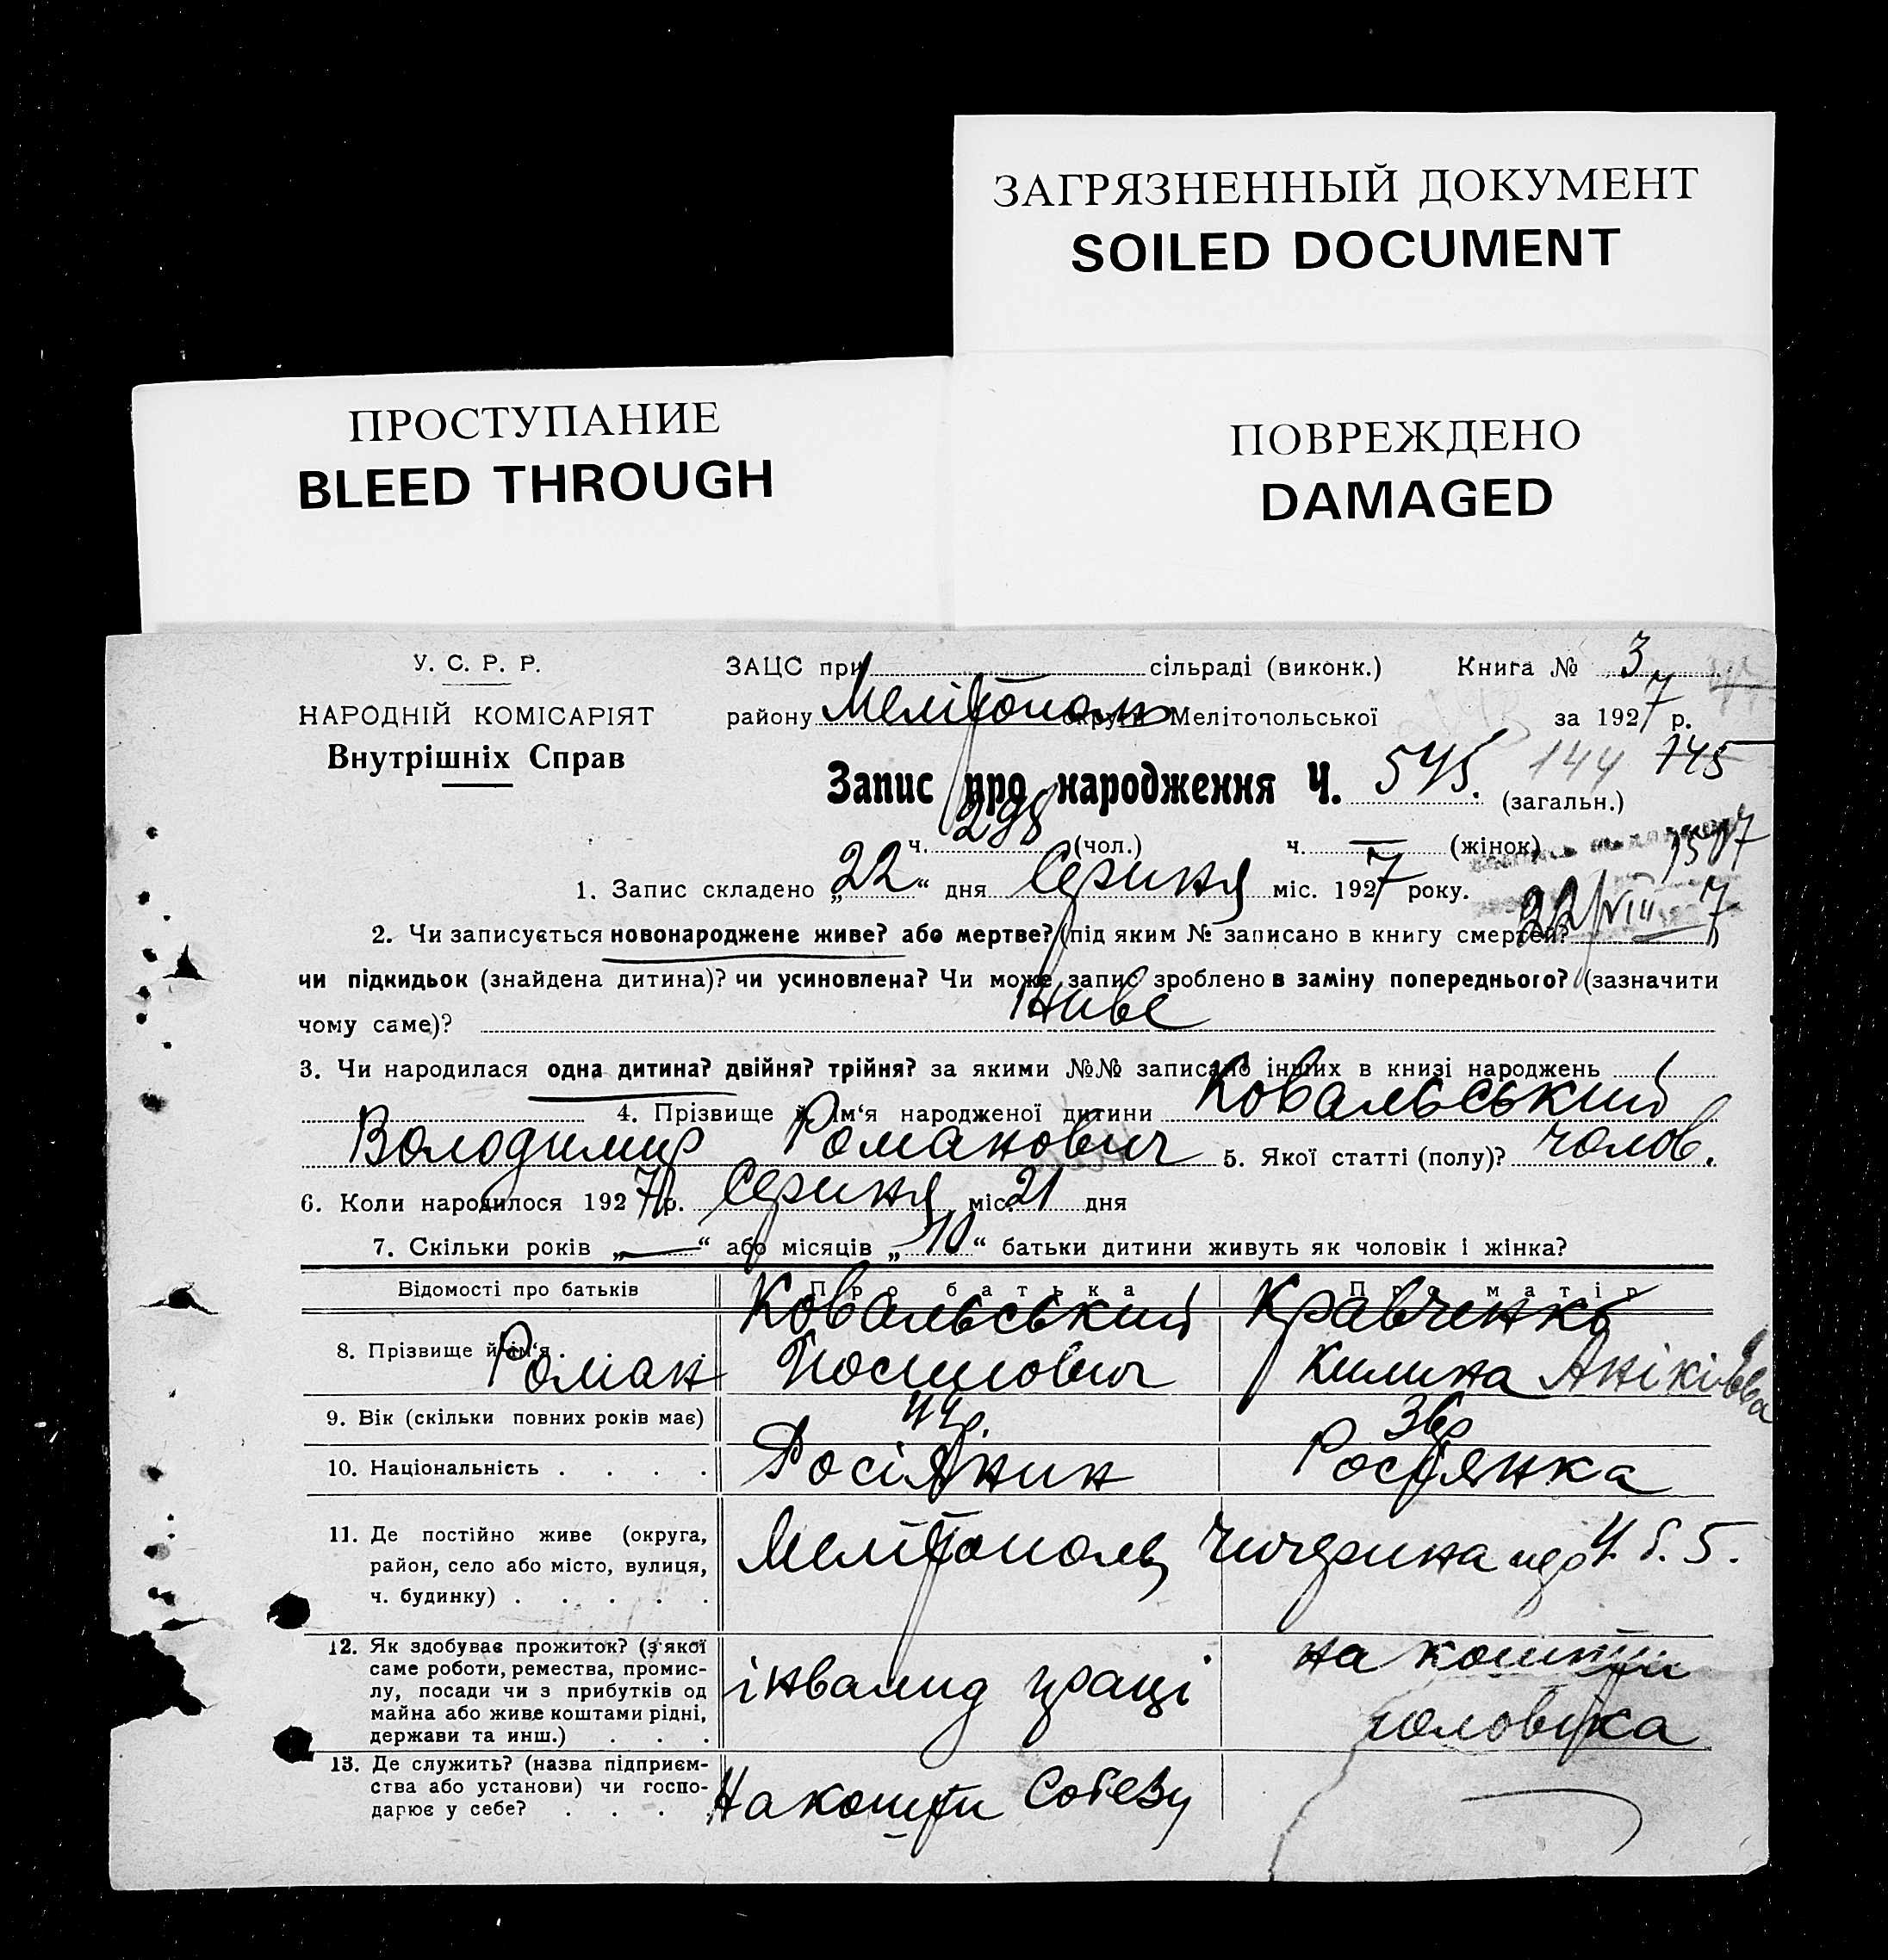 ЗАГРЯЗНЕННЫЙ ДОКУМЕНТ
SOILED DOCUMENT
ПРОСТУПАНИЕ
BLEED THROUGH
ПОВРЕЖДЕНО
DAMAGED
У. С. Р. Р.
НАРОДНІЙ КОМІСАРІЯТ
Внутрішніх Справ
ЗАЦС при сільраді (виконк.) Книга № 3
району Мелітополь округи Мелітопольської за 1927 р.
Запис про народження Ч. 545. 144 145
(загальн.)
ч. 298 (чол.) ч. — (жінок) 1507
1. Запис складено „22“ дня Серпня міс. 1927 року. 22/VIII 7
2. Чи записується новонароджене живе? або мертве? (під яким № записано в книгу смертей?
чи підкидьок (знайдена дитина)? чи усиновлена? Чи може запис зроблено в заміну попереднього? (зазначити
чому саме)? Живе
3. Чи народилася одна дитина? двійня? трійня? за якими №№ записано інших в книзі народжень
4. Прізвище й ім‘я народженої дитини Ковальський
Володимир Романович 5. Якої статті (полу)? чолов.
6. Коли народилося 1927 р. Серпня міс. 21 дня
7. Скільки років „—“ або місяців „10“ батьки дитини живуть як чоловік і жінка?
Відомості про батьків Про батька Про матір
8. Прізвище й ім‘я . Ковальський Роман Йосипович Кравченко Килина Анікіївна
9. Вік (скільки повних років має) 44р. 36р
10. Національність . . . . Росіянин Росіянка
11. Де постійно живе (округа,
район, село або місто, вулиця,
ч. будинку) . . . . . Мелітополь Чичерина ч. б. 5.
12. Як здобуває прожиток? (з якої
саме роботи, ремества, промис-
лу, посади чи з прибутків од
майна або живе коштами рідні,
держави та инш.) . . . інвалид праці на кошти чоловіка
13. Де служить? (назва підприєм-
ства або установи) чи госпо-
дарює у себе? . . . . На кошти Собезу